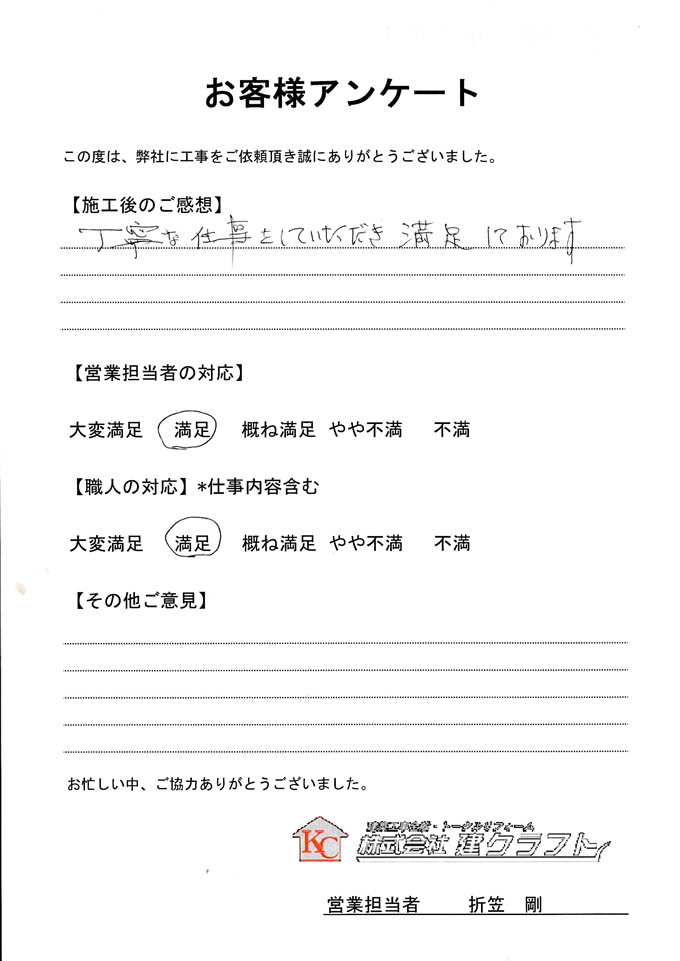 お客様アンケート
この度は、弊社に工事をご依頼頂き誠にありがとうございました。
【施工後のご感想】
丁寧な仕事をしていただき 満足しております
【営業担当者の対応】
大変満足 満足 概ね満足 やや不満 不満
【職人の対応】*仕事内容含む
大変満足 満足 概ね満足 やや不満 不満
【その他ご意見】
お忙しい中、ご協力ありがとうございました。
KC
建築工事全般・トータルリフォーム
株式会社 建クラフト
営業担当者 折笠 剛